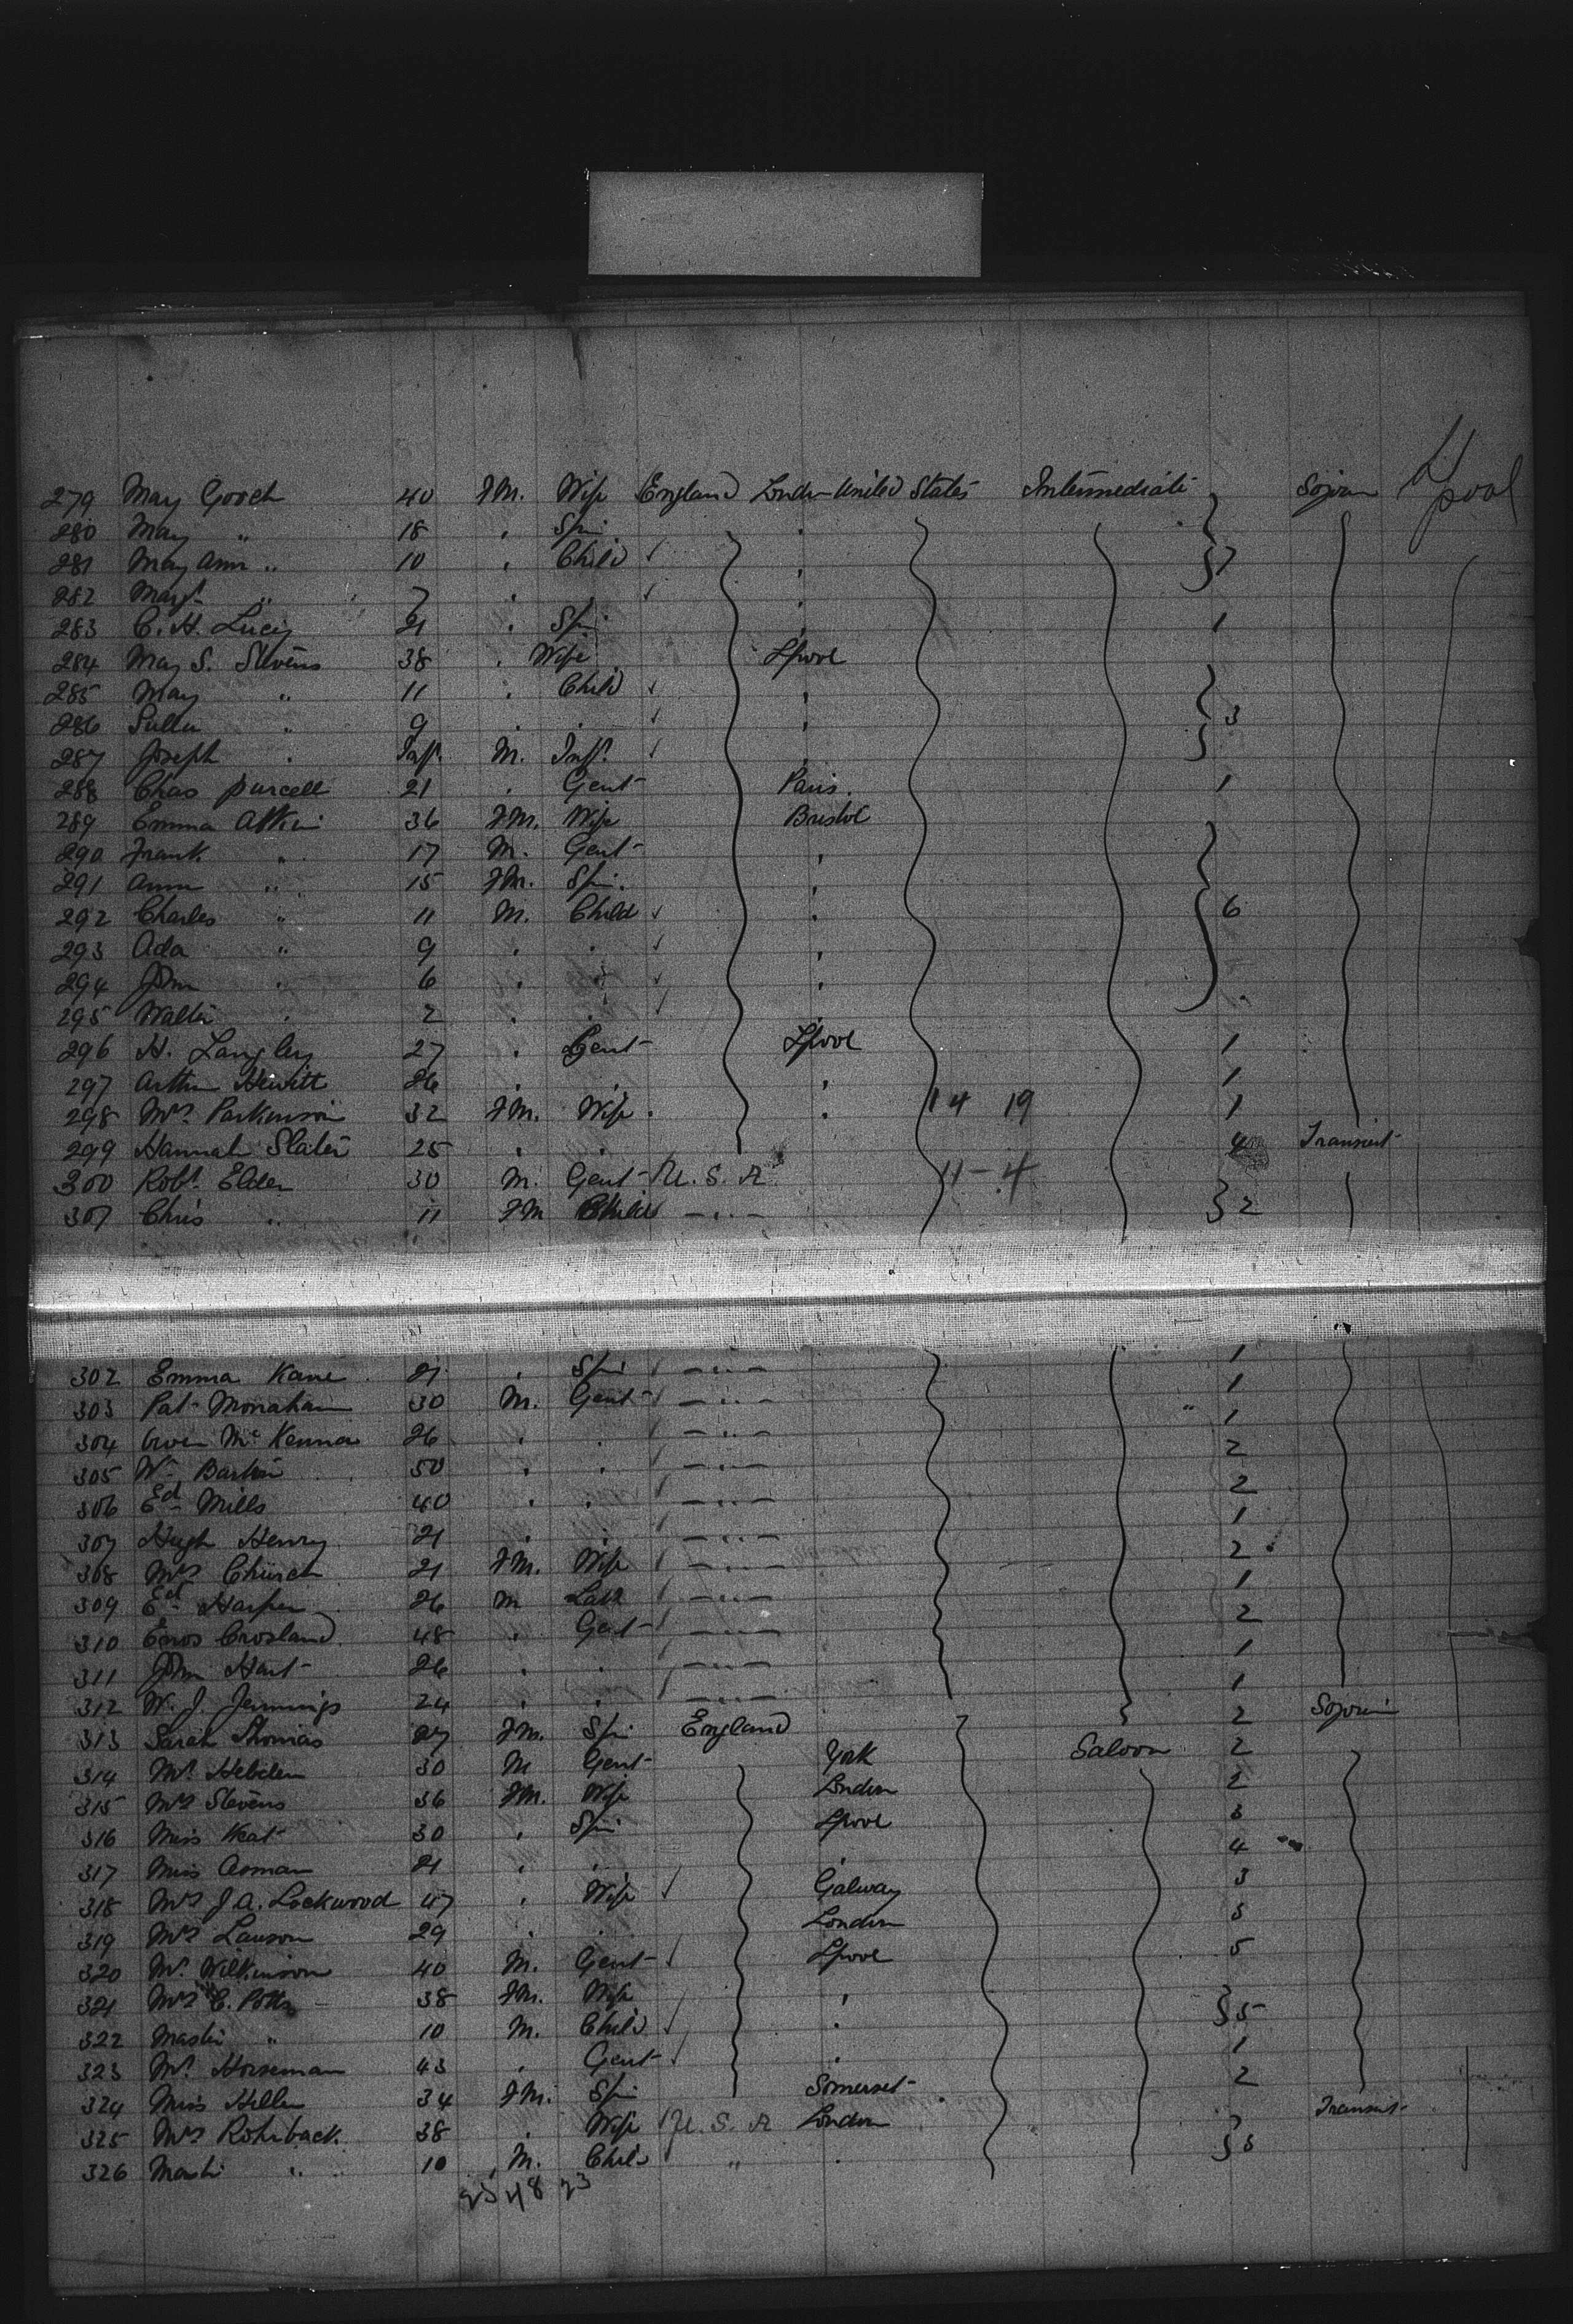 279 Mary Gooch 40 FM. Wife England London United States Intermediate Sojourn L'pool
280 Mary " 18 " Spin "
281 Mary Ann " 10 " Child "
282 Margt " 7 " " " 7
283 C. H. Lucy 21 " Spin " 1
284 Mary S. Stevens 38 " Wife L'pool
285 Mary " 11 " Child "
286 " 9 " " " 3
287 Joseph " Inft. M. Inft. "
288 Chas Purcell 21 " Gent Paris. 1
289 Emma Atkin 36 FM. Wife Bristol
290 Frank " 17 M. Gent "
291 Ann " 15 FM. Spin. "
292 Charles " 11 M. Child " 6
293 Ada " 9 " " "
294 John " 6 " " "
295 Walter " 2 " " "
296 H. Langley 27 " Gent L'pool 1
297 Arthur Hewitt 26 " " " 1
298 Mrs. Parkinson 32 FM. Wife " 14 19 1
299 Hannah Slater 25 " " 4 Transient
300 Robt. Elder 30 M. Gent U.S.A 11-4
301 Chris " 11 FM Child - " - 2
302 Emma Kane 21 " Spin - " - 1
303 Pat Monahan 30 M. Gent - " - 1
304 Owen McKenna 26 " " - " - 1
305 Wm Barker 50 " " - " - 2
306 Ed Mills 40 " " - " - 2
307 Hugh Henry 21 " " - " - 1
308 Mrs Church 21 FM. Wife - " - 2
309 Ed Harper 26 M Labr - " - 1
310 Enos Crosland 48 " Gent - " - 2
311 John Hart 26 " " - " - 1
312 W. J. Jennings 24 " " - " - 1
313 Sarah Thomas 27 FM. Spin England 2 Sojourn
314 Mr. Hebden 30 M Gent York Saloon 2
315 Mrs Stevens 36 FM. Wife London 2
316 Miss Keat 30 " Spin L'pool 3
317 Miss Asman 21 " " " 4
318 Mrs J. A. Lockwood 47 " Wife Galway 3
319 Mrs Lawson 29 " " London 3
320 Mr. Wilkinson 40 M. Gent L'pool 5
321 Mrs C. Potts 38 FM. Wife "
322 Master " 10 M. Child " 5
323 Mr. Horseman 43 " Gent " 1
324 Miss Hellen 34 FM. Spin Somerset 2
325 Mrs Rohrback 38 " Wife U.S.A London Transient
326 Master " 10 M. Child " " 3